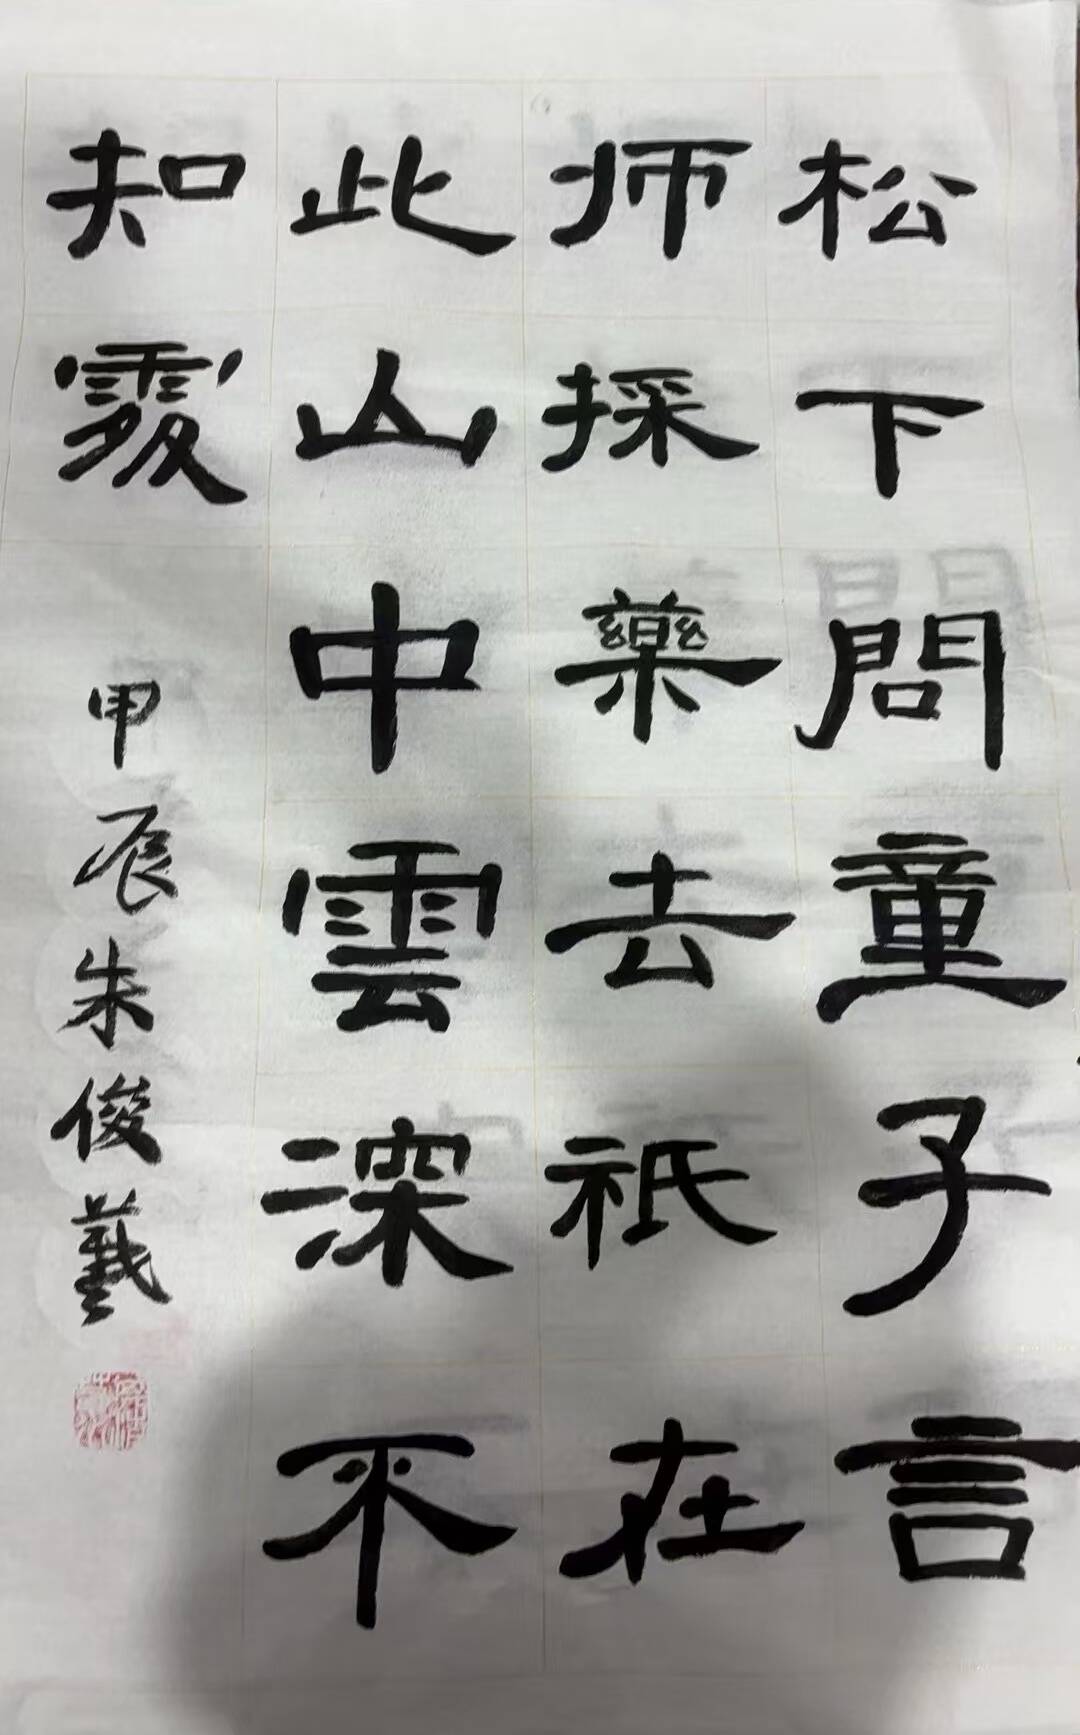 松下問童子言
师採藥去祇在
此山中雲深不
知處
甲辰朱俊羲